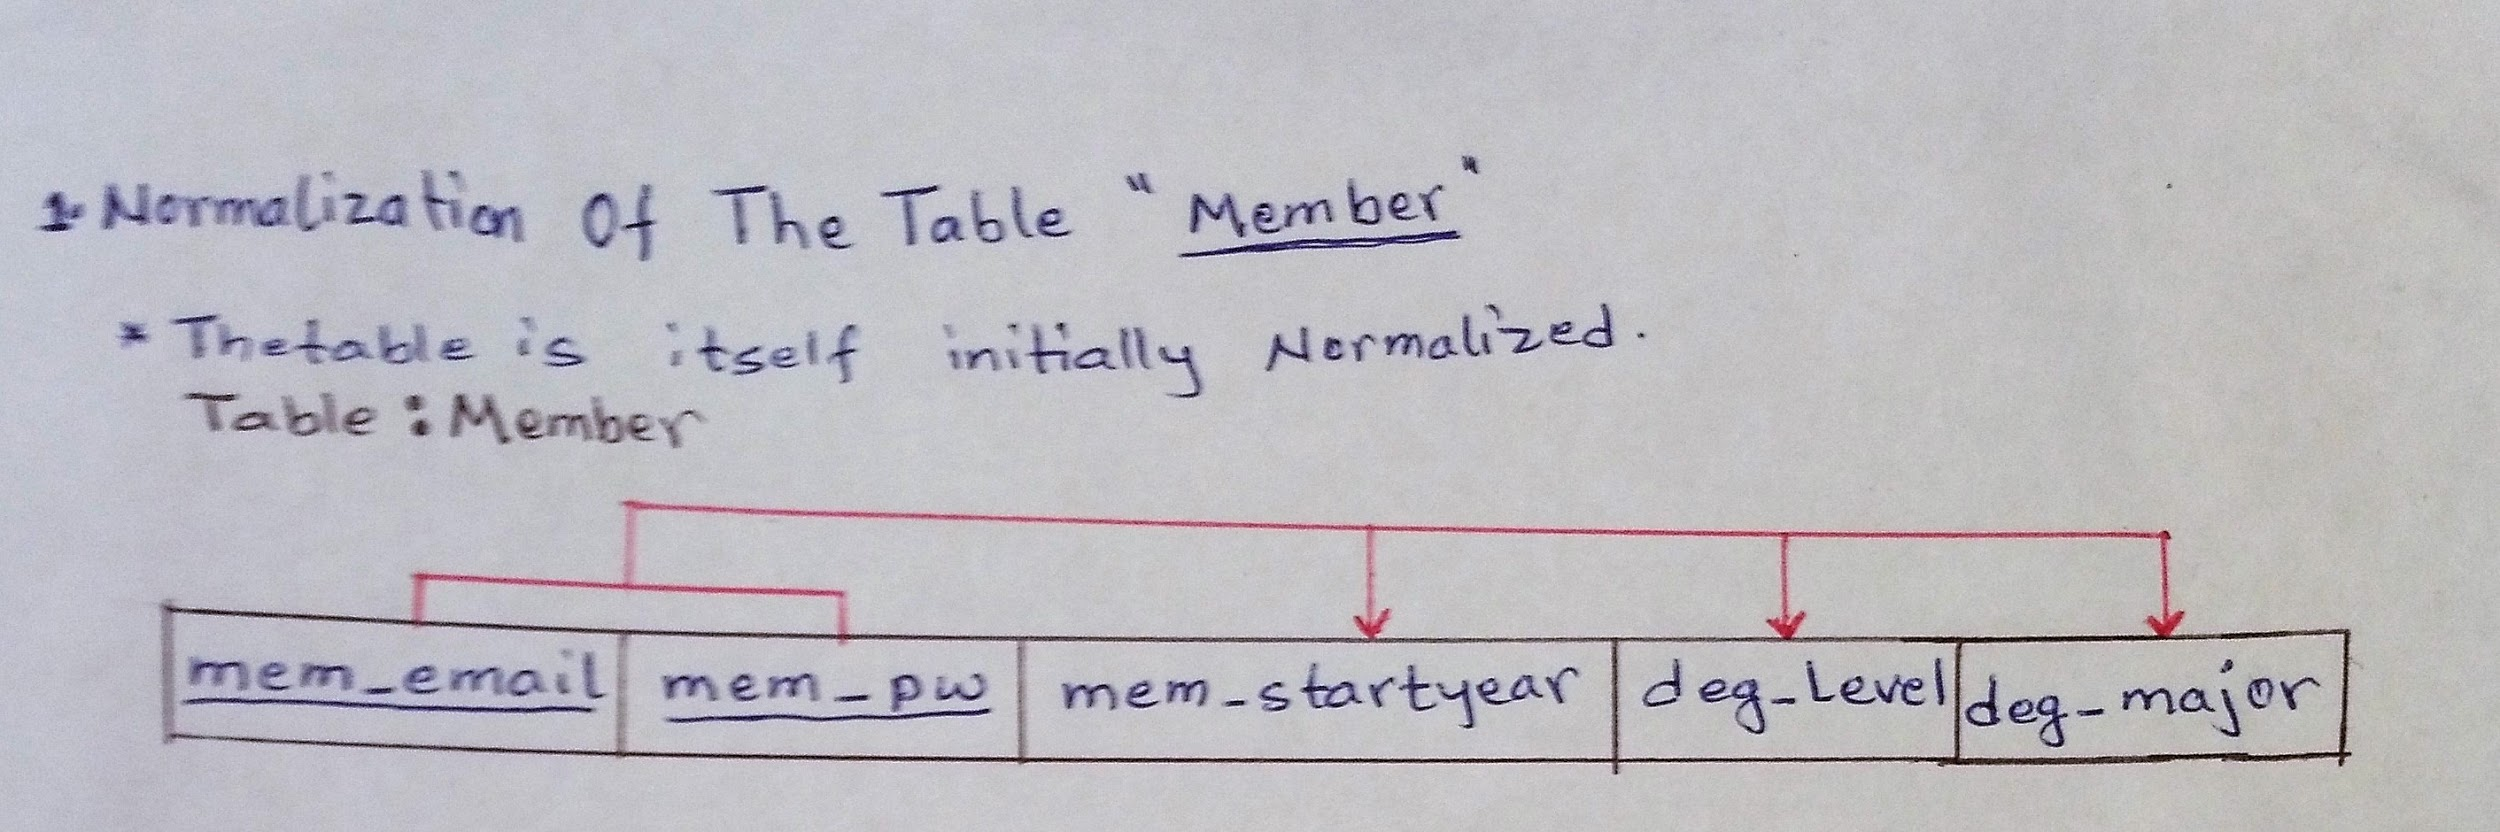 1. Normalization Of The Table "Member"
* Thetable is itself initially Normalized.
Table : Member
mem_email mem_pw mem_startyear deg_Level deg_major